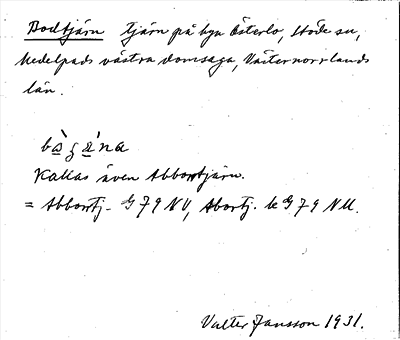 Bodtjärn tjärn på byn Österlo, Stöde sn,
Medelpads västra domsaga, Västernorrlands
län.
Kallas även Abborrtjärn.
= Abborrtj. G 79 NV, Abortj. be G 79 NU.
Valter Jansson 1931.